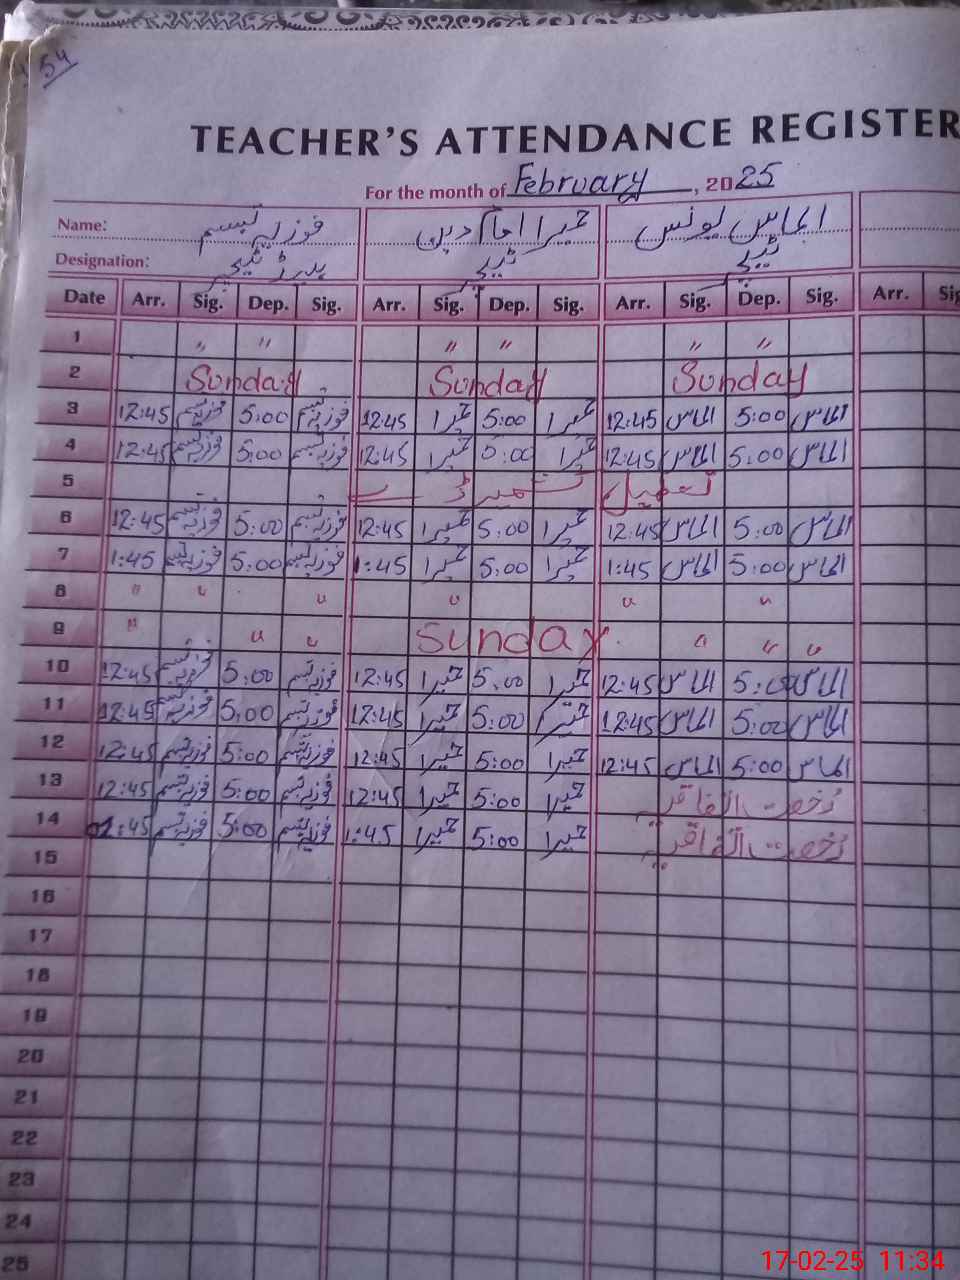 54
TEACHER'S ATTENDANCE REGISTER
For the month of February, 2025
Name: فوزیہ تبسم حمیرا امام دین الماس یونس
Designation: ہیڈ ٹیچر ٹیچر ٹیچر
Date Arr. Sig. Dep. Sig. Arr. Sig. Dep. Sig. Arr. Sig. Dep. Sig. Arr. Sig
1 〃 〃 〃 〃 〃 〃
2 Sunday Sunday Sunday
3 12:45 فوزیہ تبسم 5:00 فوزیہ تبسم 12:45 حمیرا 5:00 حمیرا 12:45 الماس 5:00 الماس
4 12:45 فوزیہ تبسم 5:00 فوزیہ تبسم 12:45 حمیرا 5:00 حمیرا 12:45 الماس 5:00 الماس
5 تعطیل کشمیر ڈے
6 12:45 فوزیہ تبسم 5:00 فوزیہ تبسم 12:45 حمیرا 5:00 حمیرا 12:45 الماس 5:00 الماس
7 1:45 فوزیہ تبسم 5:00 فوزیہ تبسم 1:45 حمیرا 5:00 حمیرا 1:45 الماس 5:00 الماس
8 〃 〃 〃 〃 〃 〃
9 〃 〃 〃 Sunday 〃 〃 〃
10 12:45 فوزیہ تبسم 5:00 فوزیہ تبسم 12:45 حمیرا 5:00 حمیرا 12:45 الماس 5:00 الماس
11 12:45 فوزیہ تبسم 5:00 فوزیہ تبسم 12:45 حمیرا 5:00 حمیرا 12:45 الماس 5:00 الماس
12 12:45 فوزیہ تبسم 5:00 فوزیہ تبسم 12:45 حمیرا 5:00 حمیرا 12:45 الماس 5:00 الماس
13 12:45 فوزیہ تبسم 5:00 فوزیہ تبسم 12:45 حمیرا 5:00 حمیرا رخصت اتفاقیہ
14 01:45 فوزیہ تبسم 5:00 فوزیہ تبسم 1:45 حمیرا 5:00 حمیرا رخصت اتفاقیہ
15
16
17
18
19
20
21
22
23
24
25
17-02-25 11:34